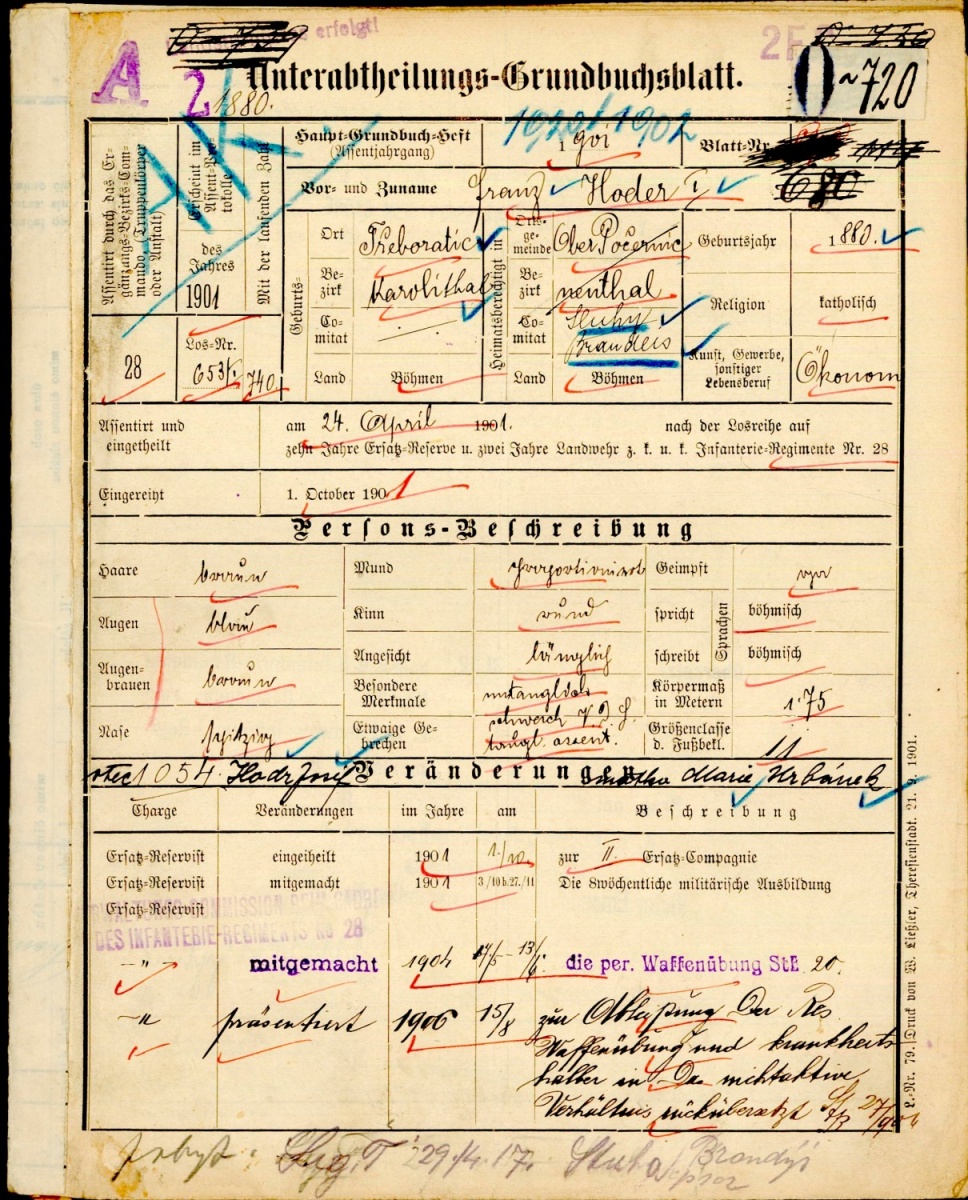 erfolgt!
A
2
1880.
Unterabtheilungs-Grundbuchsblatt.
0~720
Assentirt durch das Ergänzungs-Bezirks-Commando, (Truppenkörper oder Anstalt)
28
Erscheint im Assent-Protokolle
des Jahres
1901
Los-Nr.
653/
Mit der laufenden Zahl
740.
Haupt-Grundbuch-Heft
(Assentjahrgang)
1901
1902
Blatt-Nr.
680
Vor- und Zuname
Franz Hoder I
Geburts-
Ort
Třeboratic
Bezirk
Karolithal
Comitat
Land
Böhmen
Heimatsberechtigt in
Ortsgemeinde
Ober Počernic
Bezirk
nenthal
Comitat
Sluhy
Brandeis
Land
Böhmen
Geburtsjahr
1880.
Religion
katholisch
Kunst, Gewerbe, sonstiger Lebensberuf
Ökonom
Assentirt und eingetheilt
am 24. April 1901. nach der Losreihe auf
zehn Jahre Ersatz-Reserve u. zwei Jahre Landwehr z. k. u. k. Infanterie-Regimente Nr. 28
Eingereiht
1. October 1901
Persons-Beschreibung
Haare braun
Augen blau
Augenbrauen braun
Nase spitzig
Mund proportionirt
Kinn rund
Angesicht länglich
Besondere Merkmale
Etwaige Gebrechen
schwach
taugl. assent.
Geimpft
Sprachen
spricht böhmisch
schreibt böhmisch
Körpermaß in Metern 1·75
Größenclasse d. Fußbekl. 11
otec 1054. Hodr Josef Veränderungen matka Marie Urbánek
Charge Veränderungen im Jahre am Beschreibung
Ersatz-Reservist eingetheilt 1901 1./10. zur II. Ersatz-Compagnie
Ersatz-Reservist mitgemacht 1901 3/10 b. 27./11 Die 8wöchentliche militärische Ausbildung
Ersatz-Reservist
VERWALTUNGS-COMMISSION BEIM CADRE
DES INFANTERIE-REGIMENTS No 28
-"- mitgemacht 1904 17/5 - 13/6. die per. Waffenübung StB 20.
-" präsentiert 1906 15/8 zur Ableistung der Res
Waffenübung und krankheits
halber in das nichtaktive
Verhältnis rückübersetzt 27/
29/4.17. Stuha Brandýs
L.-Nr. 79. Druck von W. Ließler, Theresienstadt. 21. 9. 1901.